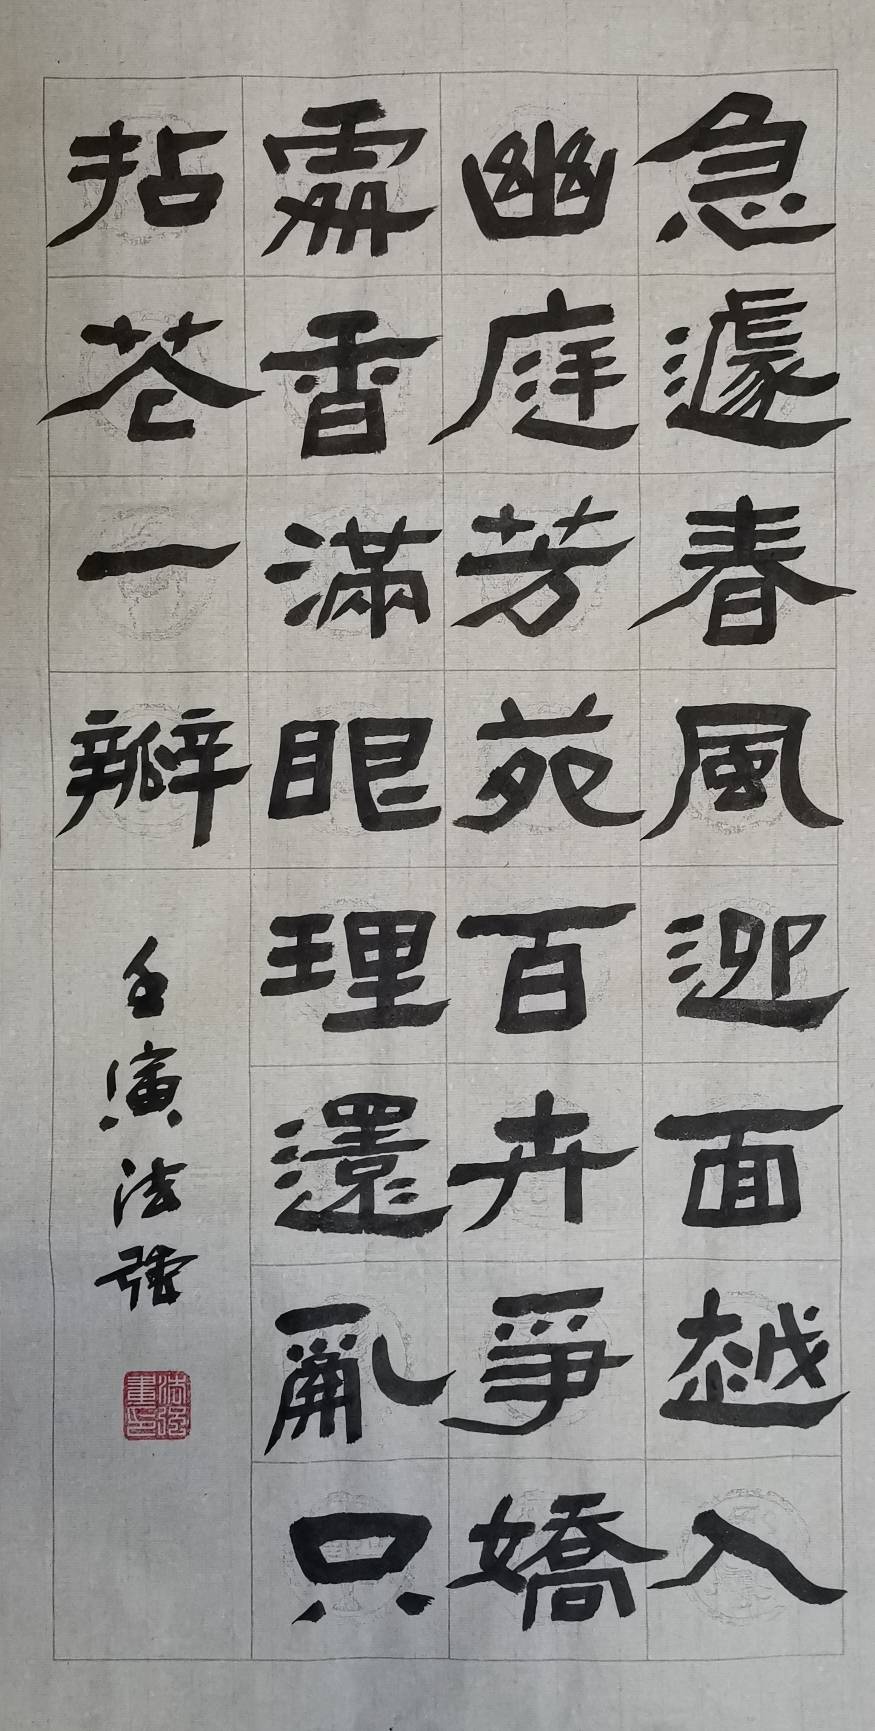 急遽春風迎面越入
幽庭芳苑百卉爭嬌
霏香滿眼理還亂只
拈花一瓣
壬寅法強
法強書印